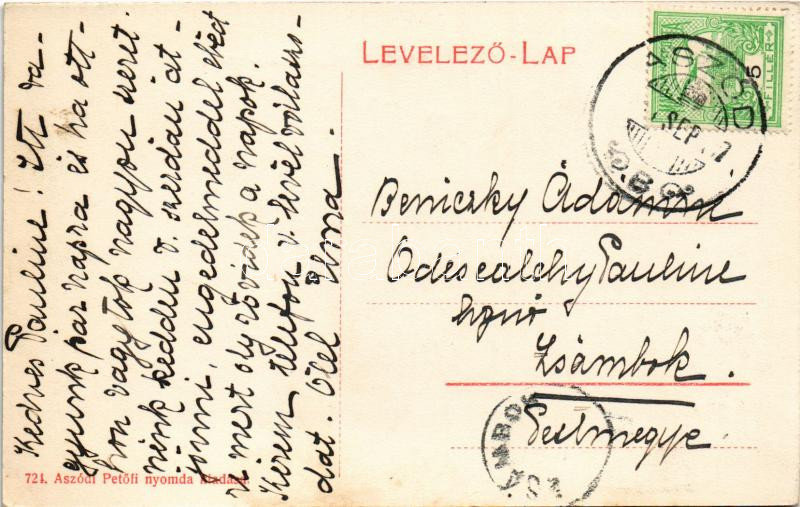 LEVELEZŐ-LAP
5
FILLÉR
ASZÓD
SEP.
Kedves Pauline! Itt va-
gyunk pár napra és ha ott-
hon vagytok nagyon szeret
nénk kedden v. szerdán át-
jönni, engedelmeddel ebéd
re mert oly rövidek a napok.
Kérem telefon v. levél válasz-
dat. Ölel Ilma.
Beniczky Ádámné
Odescalchy Pauline
hgnő
Zsámbok.
Pestmegye
ZSÁMBOK
721. Aszódi Petőfi nyomda kiadása.